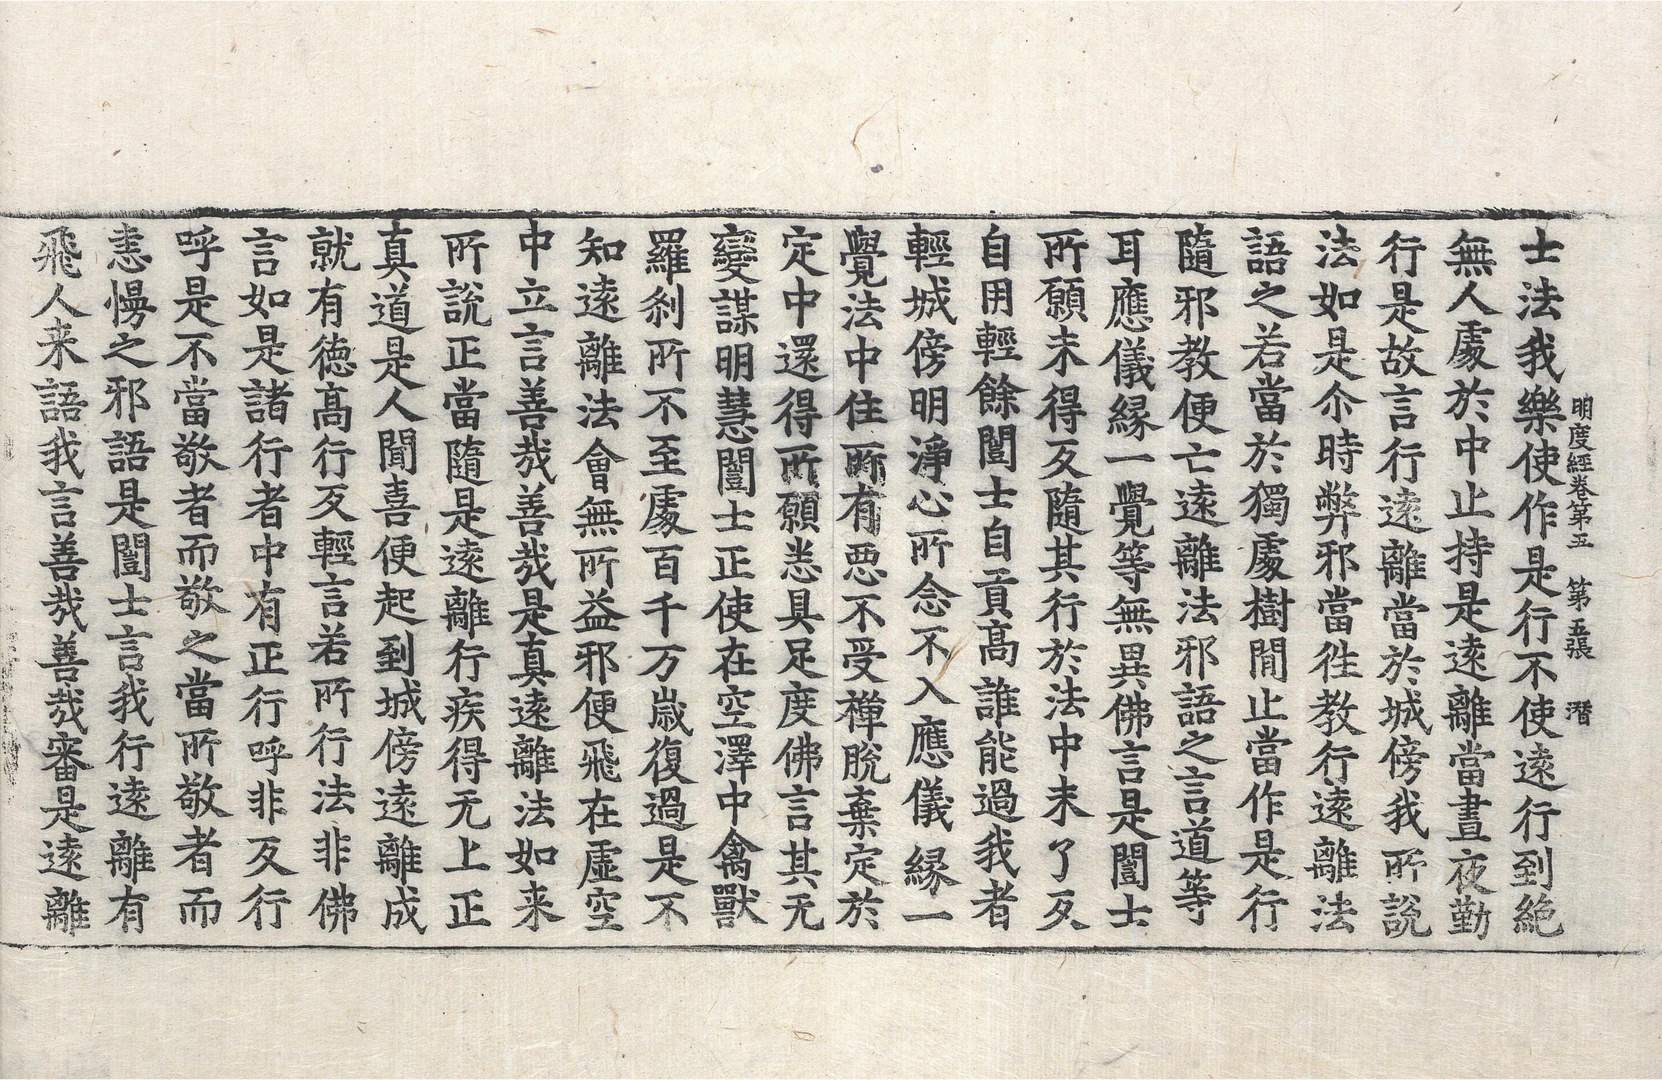 明度經卷第五　第五張　潛
士法我樂使作是行不使遠行到絶
無人處於中止持是遠離當晝夜勤
行是故言行遠離當於城傍我所說
法如是尒時弊邪當徃教行遠離法
語之若當於獨處樹閒止當作是行
隨邪教便亡遠離法邪語之言道等
耳應儀縁一覺等無異佛言是闓士
所願未得反隨其行於法中未了反
自用輕餘闓士自貢髙誰能過我者
輕城傍明淨心所念不入應儀縁一
覺法中住所有惡不受禪脫棄定於
定中還得所願悉具足度佛言其无
變謀明慧闓士正使在空澤中禽獸
羅剎所不至處百千万歲復過是不
知遠離法會無所益邪便飛在虛空
中立言善哉善哉是真遠離法如来
所說正當隨是遠離行疾得无上正
真道是人聞喜便起到城傍遠離成
就有德髙行反輕言若所行法非佛
言如是諸行者中有正行呼非反行
呼是不當敬者而敬之當所敬者而
恚慢之邪語是闓士言我行遠離有
飛人来語我言善哉善哉審是遠離